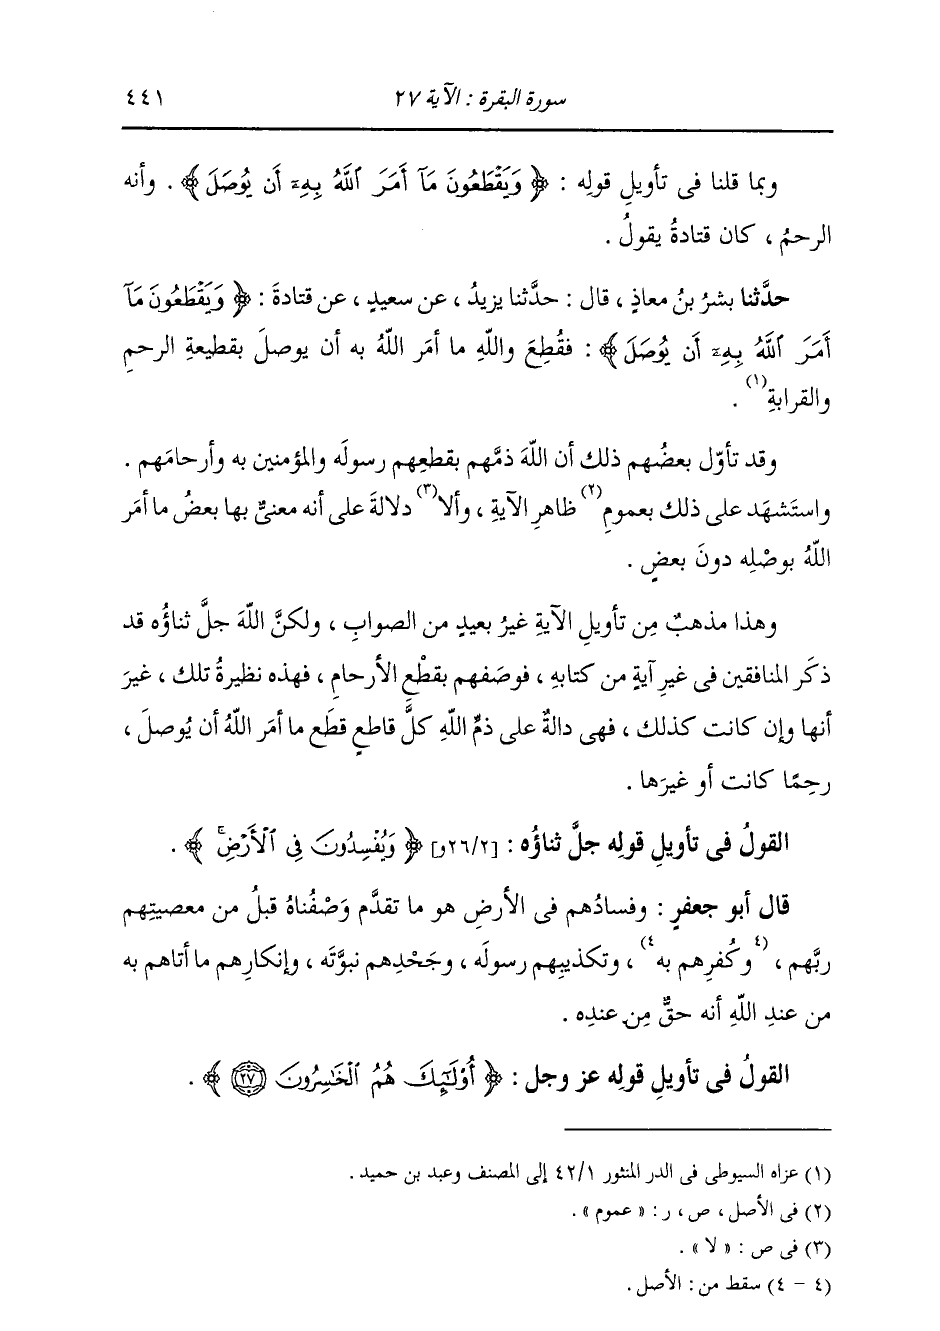 سورة البقرة : الآية ٢٧ ٤٤١
وبما قلنا فى تأويلِ قولِه : ﴿ وَيَقْطَعُونَ مَآ أَمَرَ ٱللَّهُ بِهِۦٓ أَن يُوصَلَ ﴾ . وأنه
الرحمُ ، كان قتادةُ يقولُ .
حدَّثنا بشرُ بنُ معاذٍ ، قال : حدَّثنا يزيدُ ، عن سعيدٍ ، عن قتادةَ : ﴿ وَيَقْطَعُونَ مَآ
أَمَرَ ٱللَّهُ بِهِۦٓ أَن يُوصَلَ ﴾ : فقُطِعَ واللهِ ما أمَر اللهُ به أن يوصلَ بقطيعةِ الرحمِ
والقرابةِ(١) .
وقد تأوّل بعضُهم ذلك أن اللهَ ذمَّهم بقطعِهم رسولَه والمؤمنين به وأرحامَهم .
واستَشهَد على ذلك بعمومِ(٢) ظاهرِ الآيةِ ، وألا(٣) دلالةَ على أنه معنىٌّ بها بعضُ ما أمَر
اللهُ بوصْلِه دونَ بعضٍ .
وهذا مذهبٌ مِن تأويلِ الآيةِ غيرُ بعيدٍ من الصوابِ ، ولكنَّ اللهَ جلَّ ثناؤُه قد
ذكَر المنافقين فى غيرِ آيةٍ من كتابِه ، فوصَفهم بقطْعِ الأرحامِ ، فهذه نظيرةُ تلك ، غيرَ
أنها وإن كانت كذلك ، فهى دالةٌ على ذمِّ اللهِ كلَّ قاطعٍ قطَع ما أمَر اللهُ أن يُوصلَ ،
رحِمًا كانت أو غيرَها .
القولُ فى تأويلِ قولِه جلَّ ثناؤُه : [٢٦/٢و] ﴿ وَيُفْسِدُونَ فِى ٱلْأَرْضِۚ ﴾ .
قال أبو جعفرٍ : وفسادُهم فى الأرضِ هو ما تقدَّم وَصْفُناهُ قبلُ من معصيتِهم
ربَّهم ، (٤وكُفرِهم به٤) ، وتكذيبِهم رسولَه ، وجَحْدِهم نبوَّتَه ، وإنكارِهم ما أتاهم به
من عندِ اللهِ أنه حقٌّ مِن عندِه .
القولُ فى تأويلِ قولِه عز وجل : ﴿ أُوْلَٰٓئِكَ هُمُ ٱلْخَٰسِرُونَ ٢٧ ﴾ .
(١) عزاه السيوطى فى الدر المنثور ٤٢/١ إلى المصنف وعبد بن حميد .
(٢) فى الأصل ، ص ، ر : « عموم » .
(٣) فى ص : « لا » .
(٤ - ٤) سقط من : الأصل .